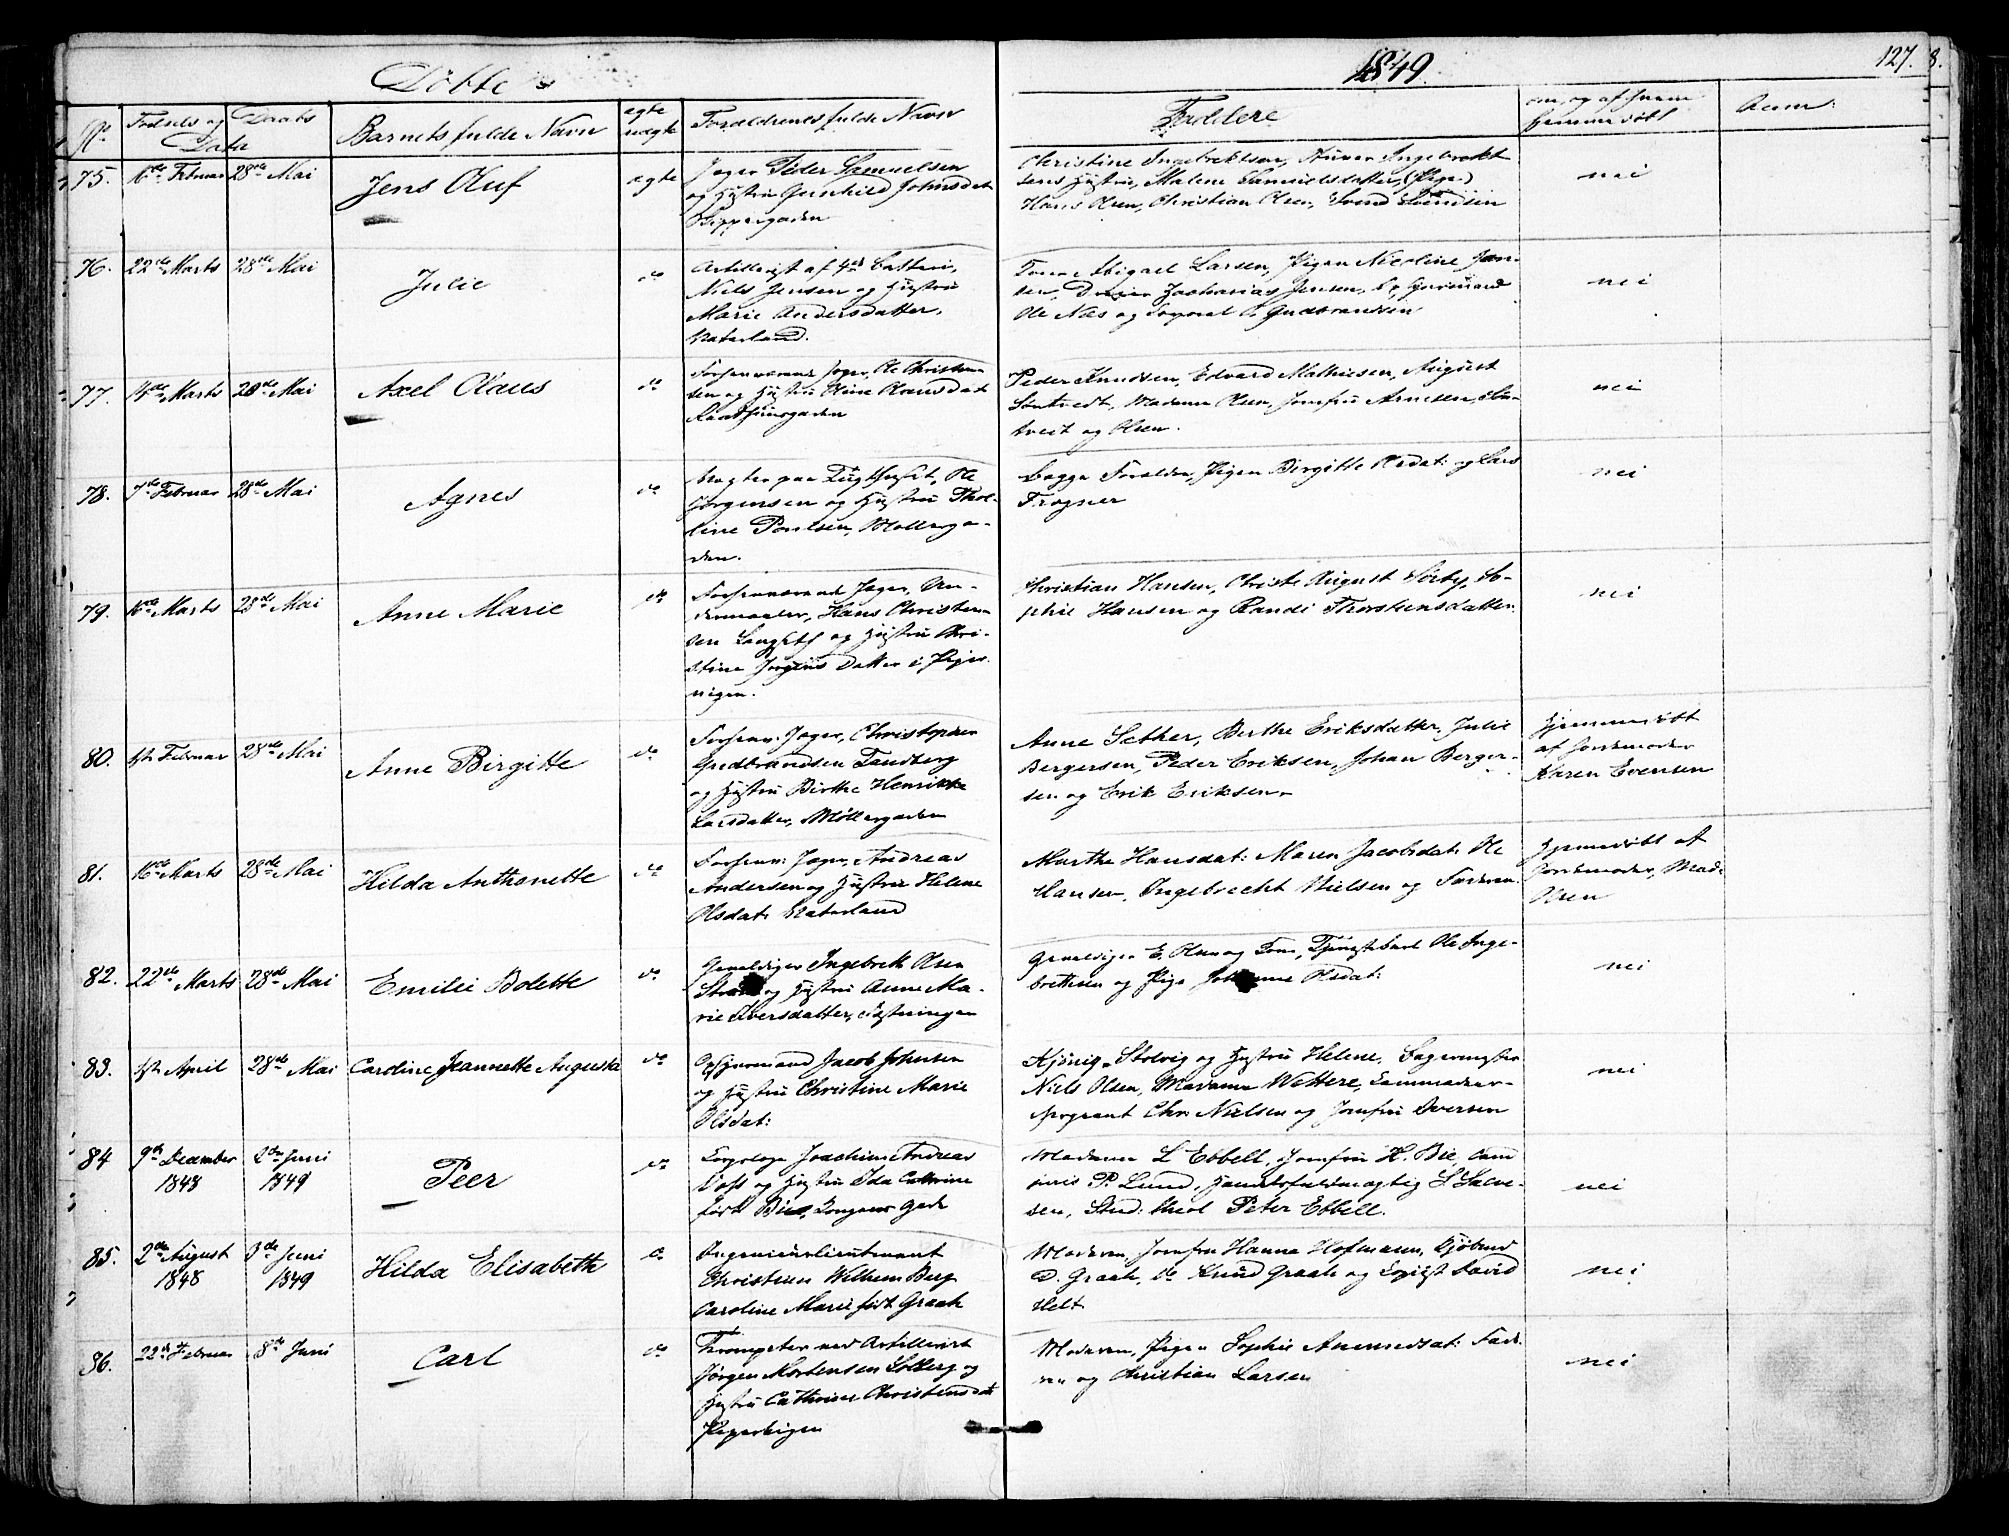 Döbte
1849.
127.
8.
No
Fødsels og Daabs
Data
Barnets fulde Navn
ægte
uægte
Forældrenes fulde Navn
Faddere
om og af hvem
hjemmedöbt
Anm:
75.
16de Februar
28de Mai
Jens Oluf
ægte
Jæger Peder Samuelsen
og Hustru Gunhild Johnsdat
Pippergaden
Christine Ingebrektsen, Ingebrekt
sens Hustru, Malene Samuelsdatter, (Pige)
Hans Olsen, Christian Olsen, Svend
nei
76.
22de Marts
28de Mai
Julie
do
Artillerist af 4de Batteri,
Niels Jensen og Hustru
Marie Andersdatter,
Vaterland.
Abigael Larsen, Pigen Nicoline Jen-
sen, Zacharias Jensen,
Ole Næs og Corporal Gudbrandsen
nei
77.
14de Marts
28de Mai
Axel Olaus
do
Forhenværende Jæger, Ole Christian
sen og Hustru Oline Olausdat
Raadhuusgaden
Peder Knudsen, Edvard Mathiesen, August
Søntvedt, Madame Olsen, Jomfru Arnesen,
tvedt og Olsen.
nei
78.
7de Februar
28de Mai
Agnes
do
Vægter paa Tugthuset, Ole
Jørgensen og Hustru Thol-
line Poulsen, Møllerga-
den.
Begge Forældre, Pigen Birgitte Olsdat: og Lars
Frogner
nei
79.
16de Marts
28de Mai
Anne Marie
do
Forhenværend Jæger,
Hans Christian
sen og Hustru Chri-
stine Jørgens Datter i Piper-
vigen.
Christian Hansen, Christe August Sörby, So-
phie Hansen og Randi Thorstensdatter.
nei
80.
1ste Februar
28de Mai
Anne Birgitte
do
Forhenv: Jæger, Christopher
Gudbrandsen Tandberg
og Hustru Birthe Henrikke
Larsdatter, Møllergaden
Anne Sether, Berthe Eriksdatter, Julie
Bergersen, Peder Eriksen, Johan Berger-
sen og Erik Eriksen.
Hjemmedöbt
af Jordemoder
Karen Evensen
81.
16de Marts
28de Mai
Hilda Anthonette
do
Forhenv: Jæger, Andreas
Andersen og Hustru Helene
Olsdat: Vaterland
Marthe Hansdat: Maren Jacobsdat: Ole
Hansen, Ingebrecht Nielsen og Faderen.
Hjemmedöbt af
Jordemoder, Mad:
Olsen
82.
22de Marts
28de Mai
Emilie Bolette
do
Gevaldiger Ingebrekt Olsen
og Hustru Anne Ma-
rie Iversdatter, Fæstningen
Gevaldiger E. Olsen og Kone, Ole Inge-
brettsen og Pige Johanne Olsdat:
nei
83.
1ste April
28de Mai
Caroline Jeannette Augusta
do
Opsynsmand Jacob Johnsen
og Hustru Christine Marie
Olsdat:
Stolvig og Hustru Helene, Bagermester
Niels Olsen, Madame Wettere,
Chr. Nielsen og Jomfru Iversen
nei
84
9de December
1848
2den Juni
1849
Peer
do
Joachim Andreas
Voss og Hustru Ida Cathrine
født Bie, Kongens Gade
Madame L Ebbell, Jomfru H. Bie,
P. Lund, Handelsfuldmægtig S Salve-
sen, Stud: theol Peter Ebbell.
nei
85.
2de August
1848
3de Juni
1849
Hilda Elisabeth
do
Ingenieurlieutenant
Christian Wilhelm Berg
Caroline Marie født Graah
Moderen, Jomfru Hanna Hofmann, Kjøbmd
D. Graah, do Knud Graah og David
Helt
nei
86.
22de Februar
8de Juni
Carl
do
Trompeter ved Artilleriet
Jørgen Mortensen Solberg og
Hustru Cathrine Christensdat
Pipervigen
Moderen, Pigen Sophie Amundsdat: Fade-
ren og Christian Larsen
nei